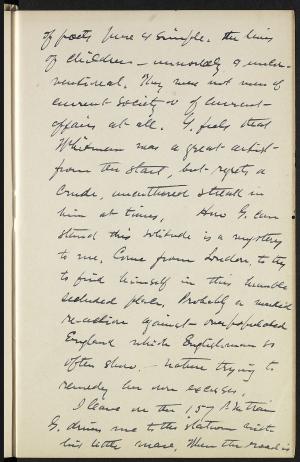 of poets pure & simple. The lives
of children – unworldly & uncon-
ventional. They were not men of
current society or of current
affairs at all. G. feels that
Whitman was a great artist
from the start, but regrets a
crude, uncultured streak in
him at times. How G. can
stand this solitude is a mystery
to me. Come from London, to try
to find himself in this humble
secluded place. Probably a marked
re-action against over populated
England which Englishmen so
often show. – nature trying to
remedy her own excesses.
I leave on the 1 57 P.M. train
G. drives me to the station with
his little mare. When the road is